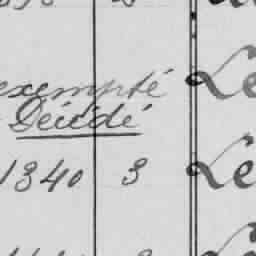 exempté Le
Décédé
1340 3 Le